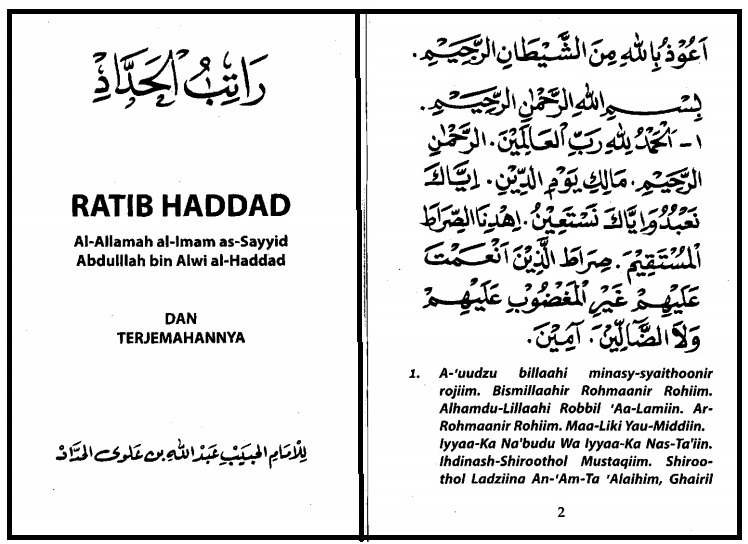 رَاتِبُ الْحَدَّادْ
RATIB HADDAD
Al-Allamah al-Imam as-Sayyid
Abdulllah bin Alwi al-Haddad
DAN
TERJEMAHANNYA
لِلْإِمَامِ الْحَبِيْبِ عَبْدِ اللهِ بِن عَلَوِى الْحَدَّادْ
اَعُوْذُ بِاللهِ مِنَ الشَّيْطَانِ الرَّجِيْمِ.
بِسْمِ اللهِ الرَّحْمٰنِ الرَّحِيْمِ.
١- اَلْحَمْدُ لِلهِ رَبِّ الْعَالَمِيْنَ. الرَّحْمٰنِ
الرَّحِيْمِ. مَالِكِ يَوْمِ الدِّيْنِ. اِيَّاكَ
نَعْبُدُ وَاِيَّاكَ نَسْتَعِيْنُ. اِهْدِنَا الصِّرَاطَ
الْمُسْتَقِيْمَ. صِرَاطَ الَّذِيْنَ اَنْعَمْتَ
عَلَيْهِمْ غَيْرِ الْمَغْضُوْبِ عَلَيْهِمْ
وَلَا الضَّالِّيْنَ. آمِيْنَ.
1. A-'uudzu billaahi minasy-syaithoonir
rojiim. Bismillaahir Rohmaanir Rohiim.
Alhamdu-Lillaahi Robbil 'Aa-Lamiin. Ar-
Rohmaanir Rohiim. Maa-Liki Yau-Middiin.
Iyyaa-Ka Na'budu Wa Iyyaa-Ka Nas-Ta'iin.
Ihdinash-Shiroothol Mustaqiim. Shiroo-
thol Ladziina An-'Am-Ta 'Alaihim, Ghairil
2